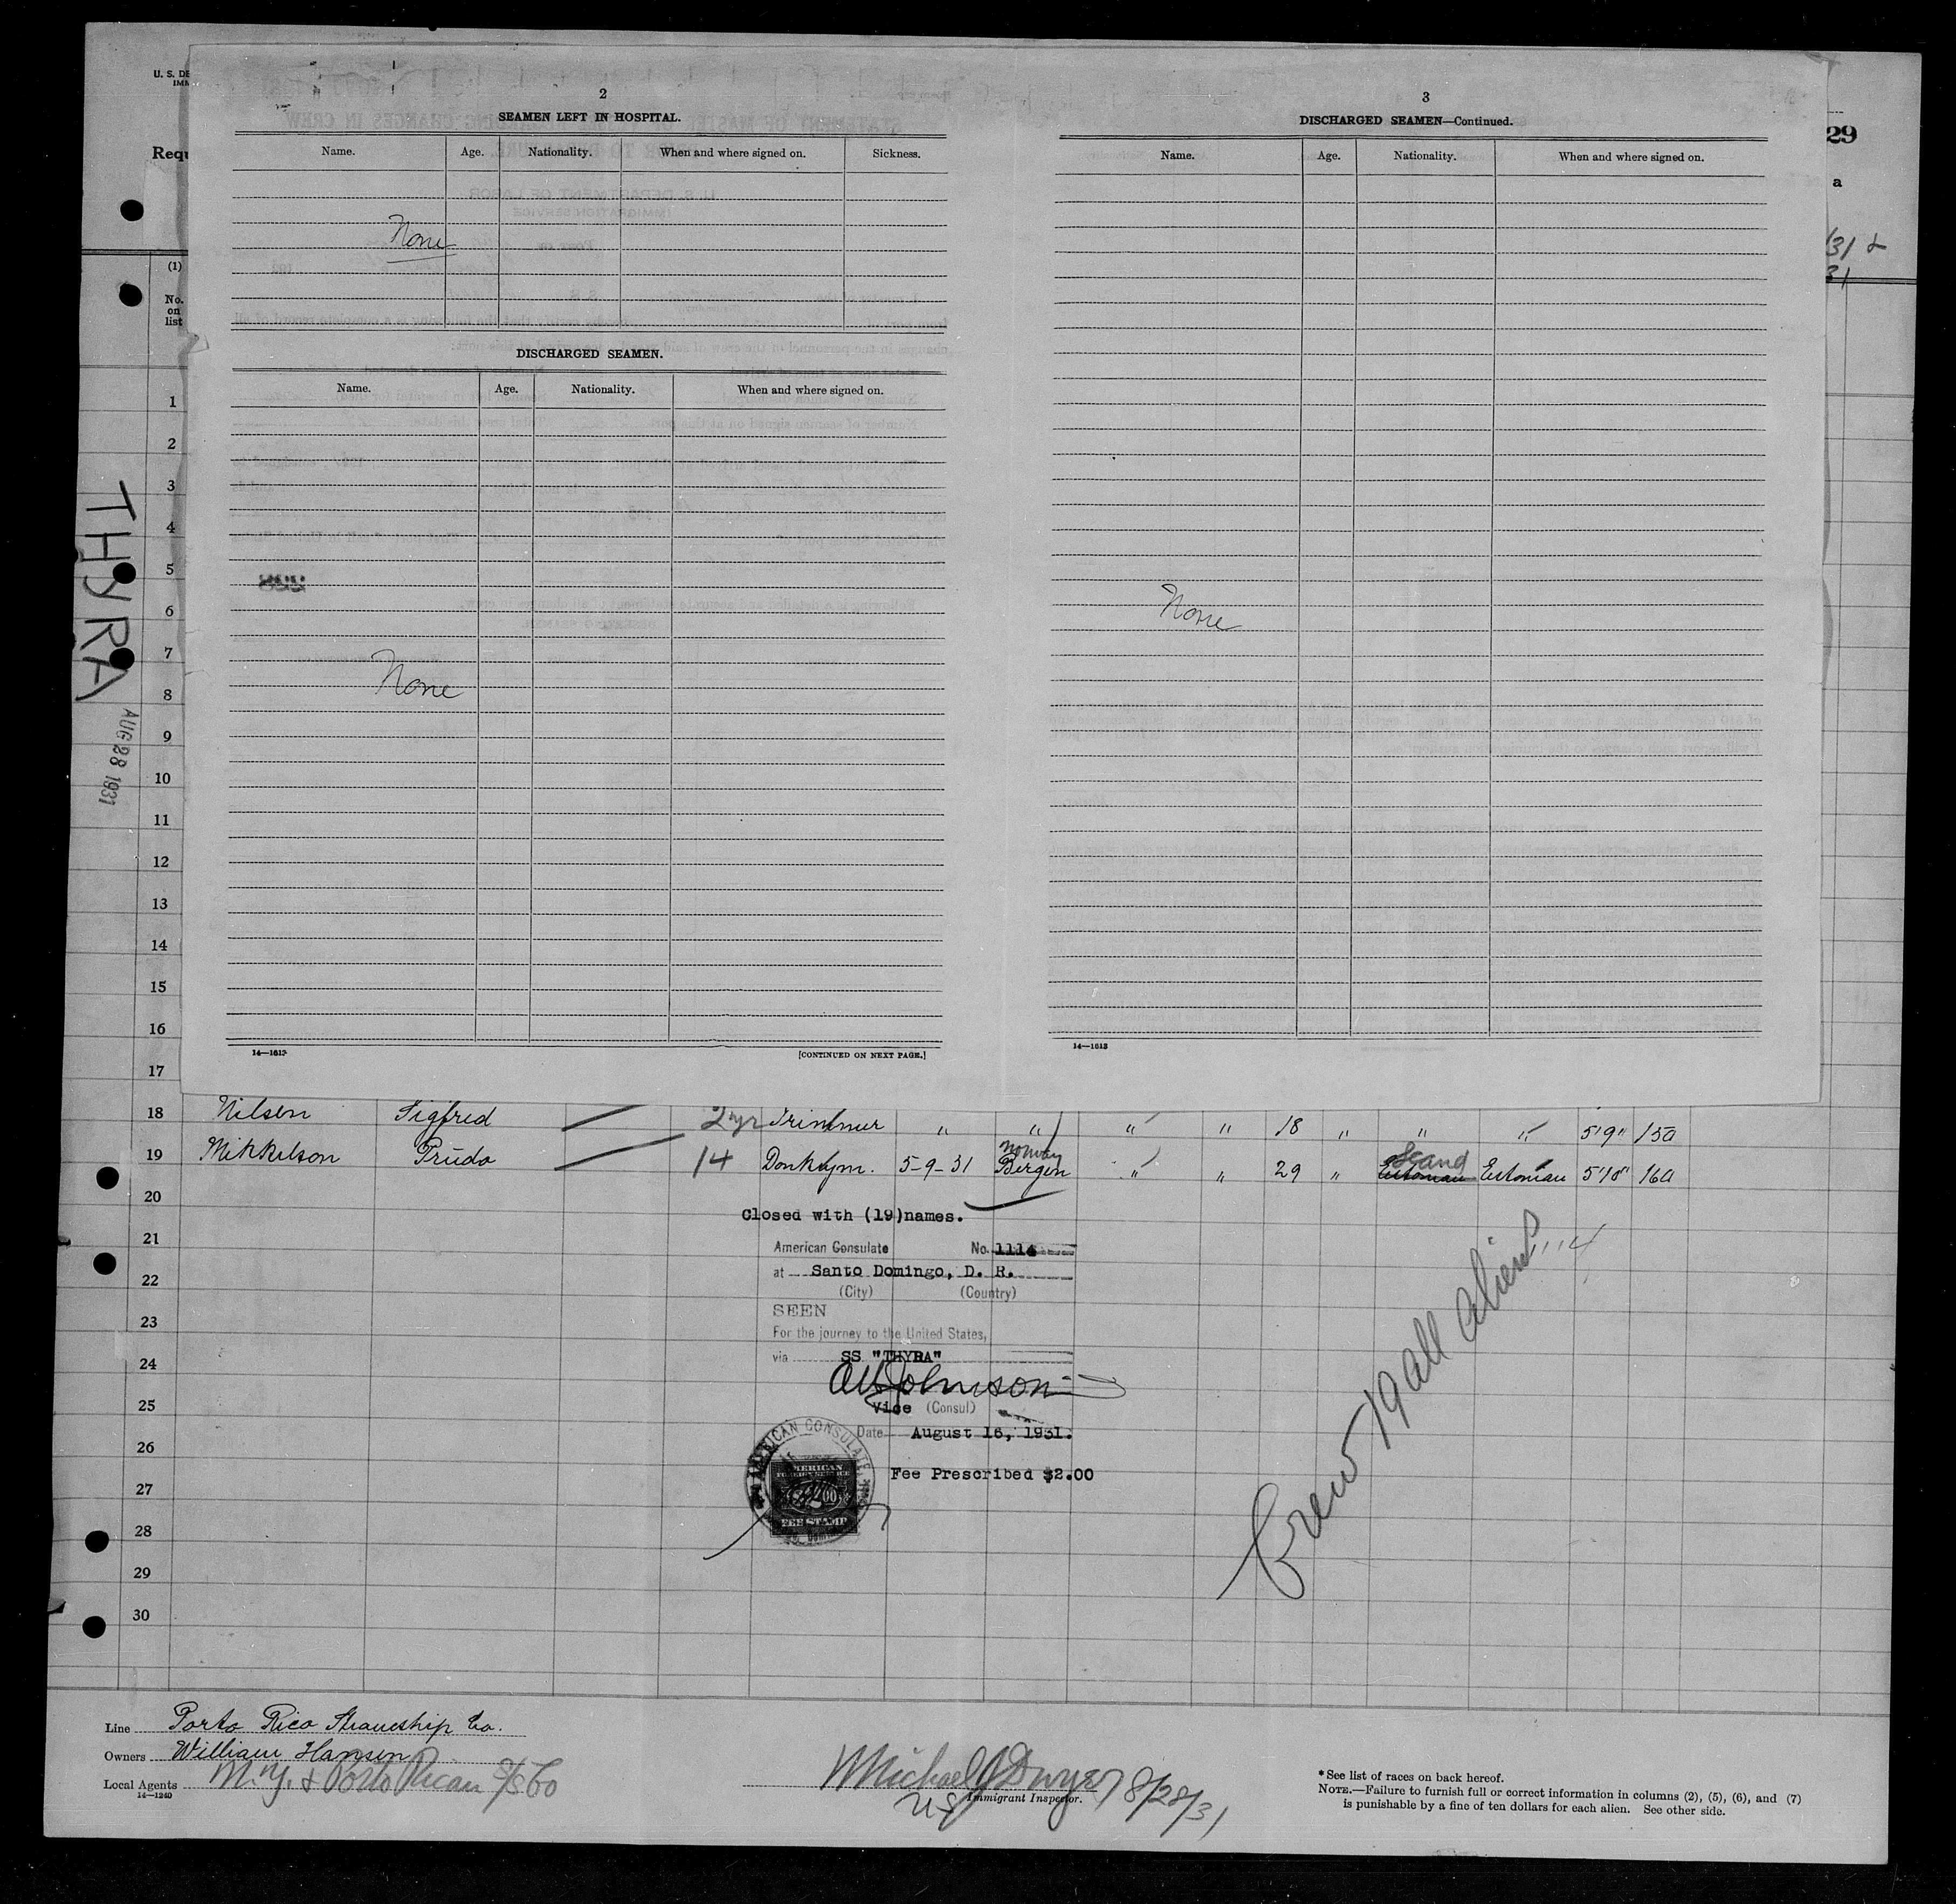 U. S. DE
IMM
Requ
29
a
/31 &
31
(1)
No.
on
list
2
SEAMEN LEFT IN HOSPITAL.
Name. Age. Nationality. When and where signed on. Sickness.
None
DISCHARGED SEAMEN.
Name. Age. Nationality. When and where signed on.
None
14—1613
[CONTINUED ON NEXT PAGE.]
3
DISCHARGED SEAMEN—Continued.
Name. Age. Nationality. When and where signed on.
None
14—1613
THYRA
AUG 28 1931
1
2
3
4
5
6
7
8
9
10
11
12
13
14
15
16
17
18 Nilsen Sigfred 2yr Trimmer " " " " 18 " " " 5'9" 150
19 Mikkelson Trudo 14 Donkeym. 5-9-31 Norway Bergen " " 29 " Scand Estonian Estonian 5'10" 160
20
21
22
23
24
25
26
27
28
29
30
Closed with (19)names.
American Consulate No. 1114
at Santo Domingo, D. R.
(City) (Country)
SEEN
For the journey to the United States,
via SS "THYRA"
Johnson
Vice (Consul)
Date August 16, 1931.
Fee Prescribed $2.00
AMERICAN CONSULATE
AMERICAN
FOREIGN SERVICE
FEE STAMP
Crew 19 all aliens
1114
Line Porto Rico Steamship Co.
Owners William Hansen
Local Agents N.Y. & Porto Rican S/S Co
14—1240
Michael J Dwyer 8/28/31
Immigrant Inspector.
* See list of races on back hereof.
NOTE.—Failure to furnish full or correct information in columns (2), (5), (6), and (7)
is punishable by a fine of ten dollars for each alien. See other side.